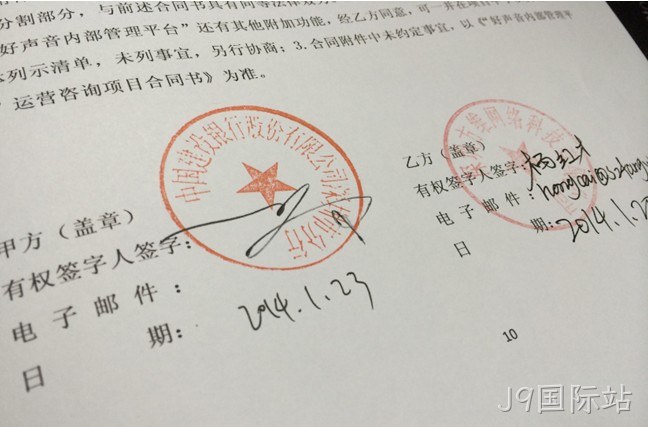 分割部分，与前述合同书具有同等法律效力
好声音内部管理平台”还有其他附加功能，经乙方同意，可一并在项目
列示清单，未列事宜，另行协商；3.合同附件中未约定事宜，以《“好声音内部管理平
运营咨询项目合同书》为准。
中国建设银行股份有限公司深圳市分行
甲方（盖章）
有权签字人签字：
电子邮件：
日期：2014.1.23
网络科技
乙方（盖章）
有权签字人签字：杨红才
电子邮件：hongcai@
日期：2014.1.23
10
J9国际站